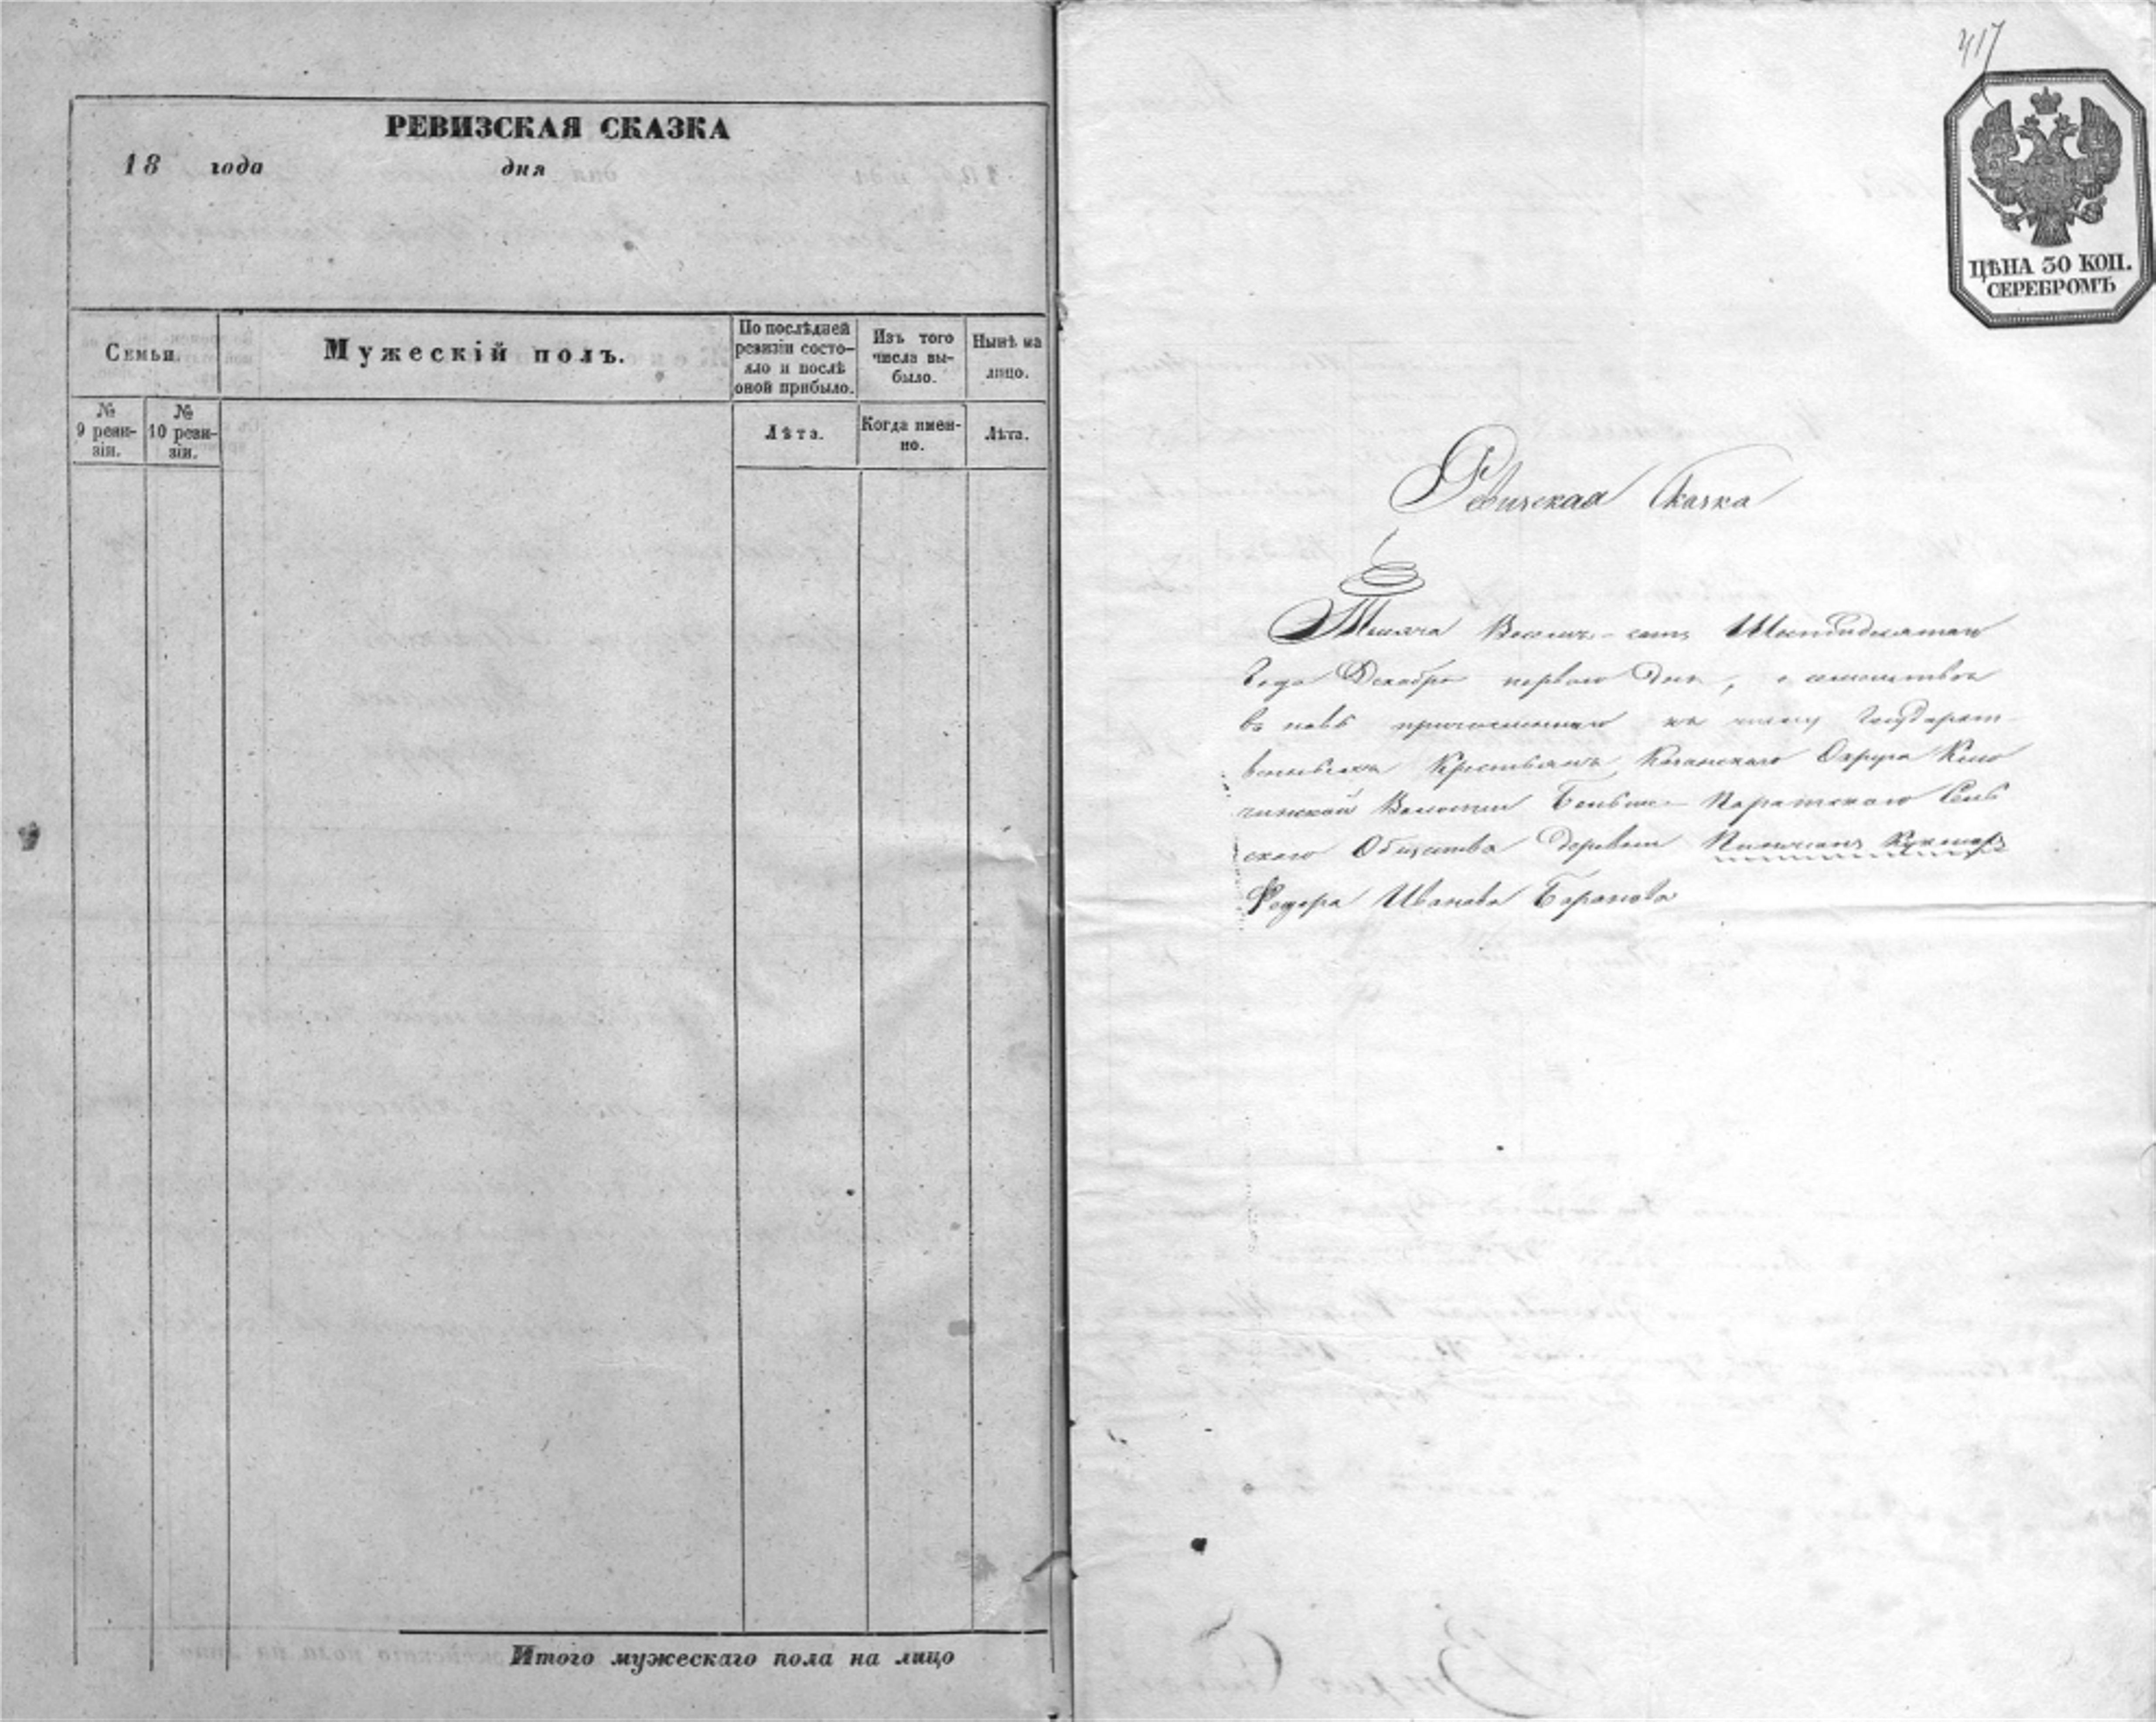 РЕВИЗСКАЯ СКАЗКА
18 года дня
Семьи.
Мужескій полъ.
По послѣдней
ревизіи состо-
яло и послѣ
оной прибыло.
Изъ того
числа вы-
было.
Нынѣ на
лицо.
№
9 реви-
зіи.
№
10 реви-
зіи.
Лѣта.
Когда имен-
но.
Лѣта.
Итого мужескаго пола на лицо
417
ЦѢНА 30 КОП.
СЕРЕБРОМЪ
Ревизская Сказка
Тысяча Восемь-сотъ Шестидесятаго
Года Декабря перваго дня, о семействѣ
въ новѣ причисленнаго къ числу Государст-
венныхъ Крестьянъ Казанскаго Округа
Волости Больше-Паратскаго Сель
скаго Общества деревни
Федора Иванова Баранова